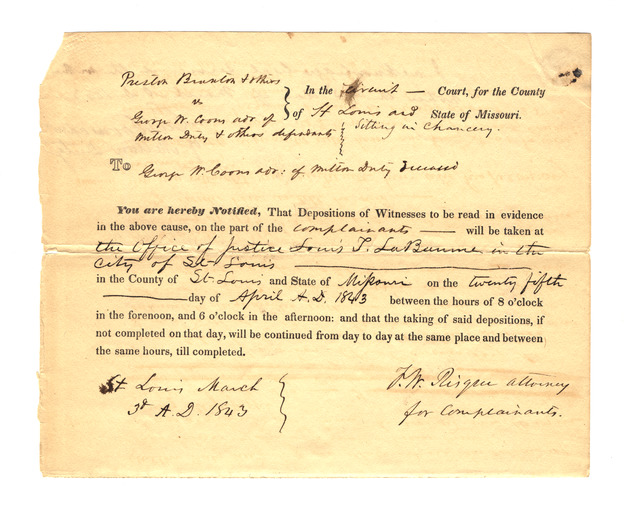 Preston Brunton & others
vs
George W. Coons adr of
Milton Duty & others defendants
In the Circuit — Court, for the County
of St Louis and State of Missouri.
Sitting in Chancery.
To George W. Coons adr: of Milton Duty deceased
You are hereby Notified, That Depositions of Witnesses to be read in evidence
in the above cause, on the part of the Complainants — will be taken at
the Office of Justice Louis T. LaBeaume in the
City of St Louis
in the County of St Louis and State of Missouri on the twenty fifth
day of April A.D. 1843 between the hours of 8 o'clock
in the forenoon, and 6 o'clock in the afternoon: and that the taking of said depositions, if
not completed on that day, will be continued from day to day at the same place and between
the same hours, till completed.
St Louis March
3d A.D. 1843
F. W. Risque attorney
for Complainants.